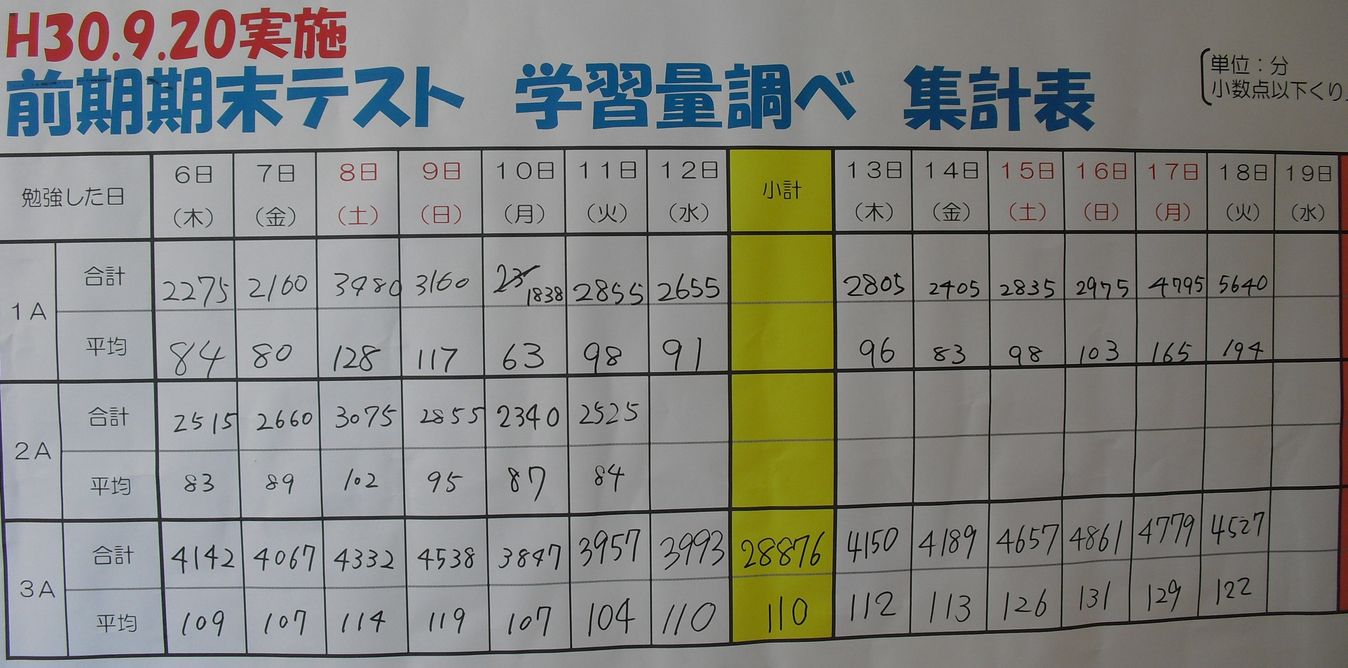 H30.9.20実施
前期期末テスト 学習量調べ 集計表
(単位:分
小数点以下くり
勉強した日 6日 7日 8日 9日 10日 11日 12日 小計 13日 14日 15日 16日 17日 18日 19日
(木) (金) (土) (日) (月) (火) (水) (木) (金) (土) (日) (月) (火) (水)
1A 合計 2275 2160 3480 3160 1838 2855 2655 2805 2405 2835 2975 4795 5640
平均 84 80 128 117 63 98 91 96 83 98 103 165 194
2A 合計 2515 2660 3075 2855 2340 2525
平均 83 89 102 95 87 84
3A 合計 4142 4067 4332 4538 3847 3957 3993 28876 4150 4189 4657 4861 4779 4527
平均 109 107 114 119 107 104 110 110 112 113 126 131 129 122